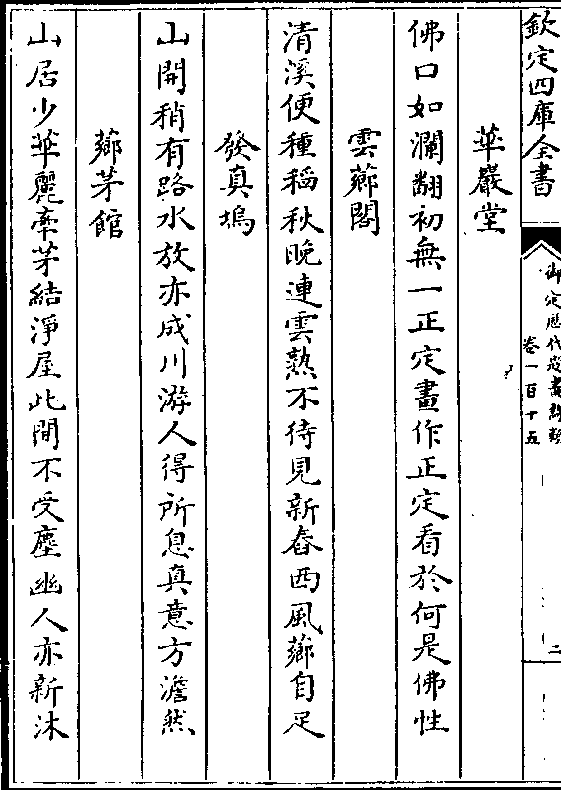 欽定四庫全書
御定歷代題畫詩類
卷一百十五
二
華嚴堂
佛口如瀾翻初無一正定畫作正定看於何是佛性
雲薌閣
清溪便種稻秋晚連雲熟不待見新舂西風薌自足
發真塢
山開稍有路水放亦成川游人得所息真意方澹然
薌茅館
山居少華麗牽茅結淨屋此間不受塵幽人亦新沐